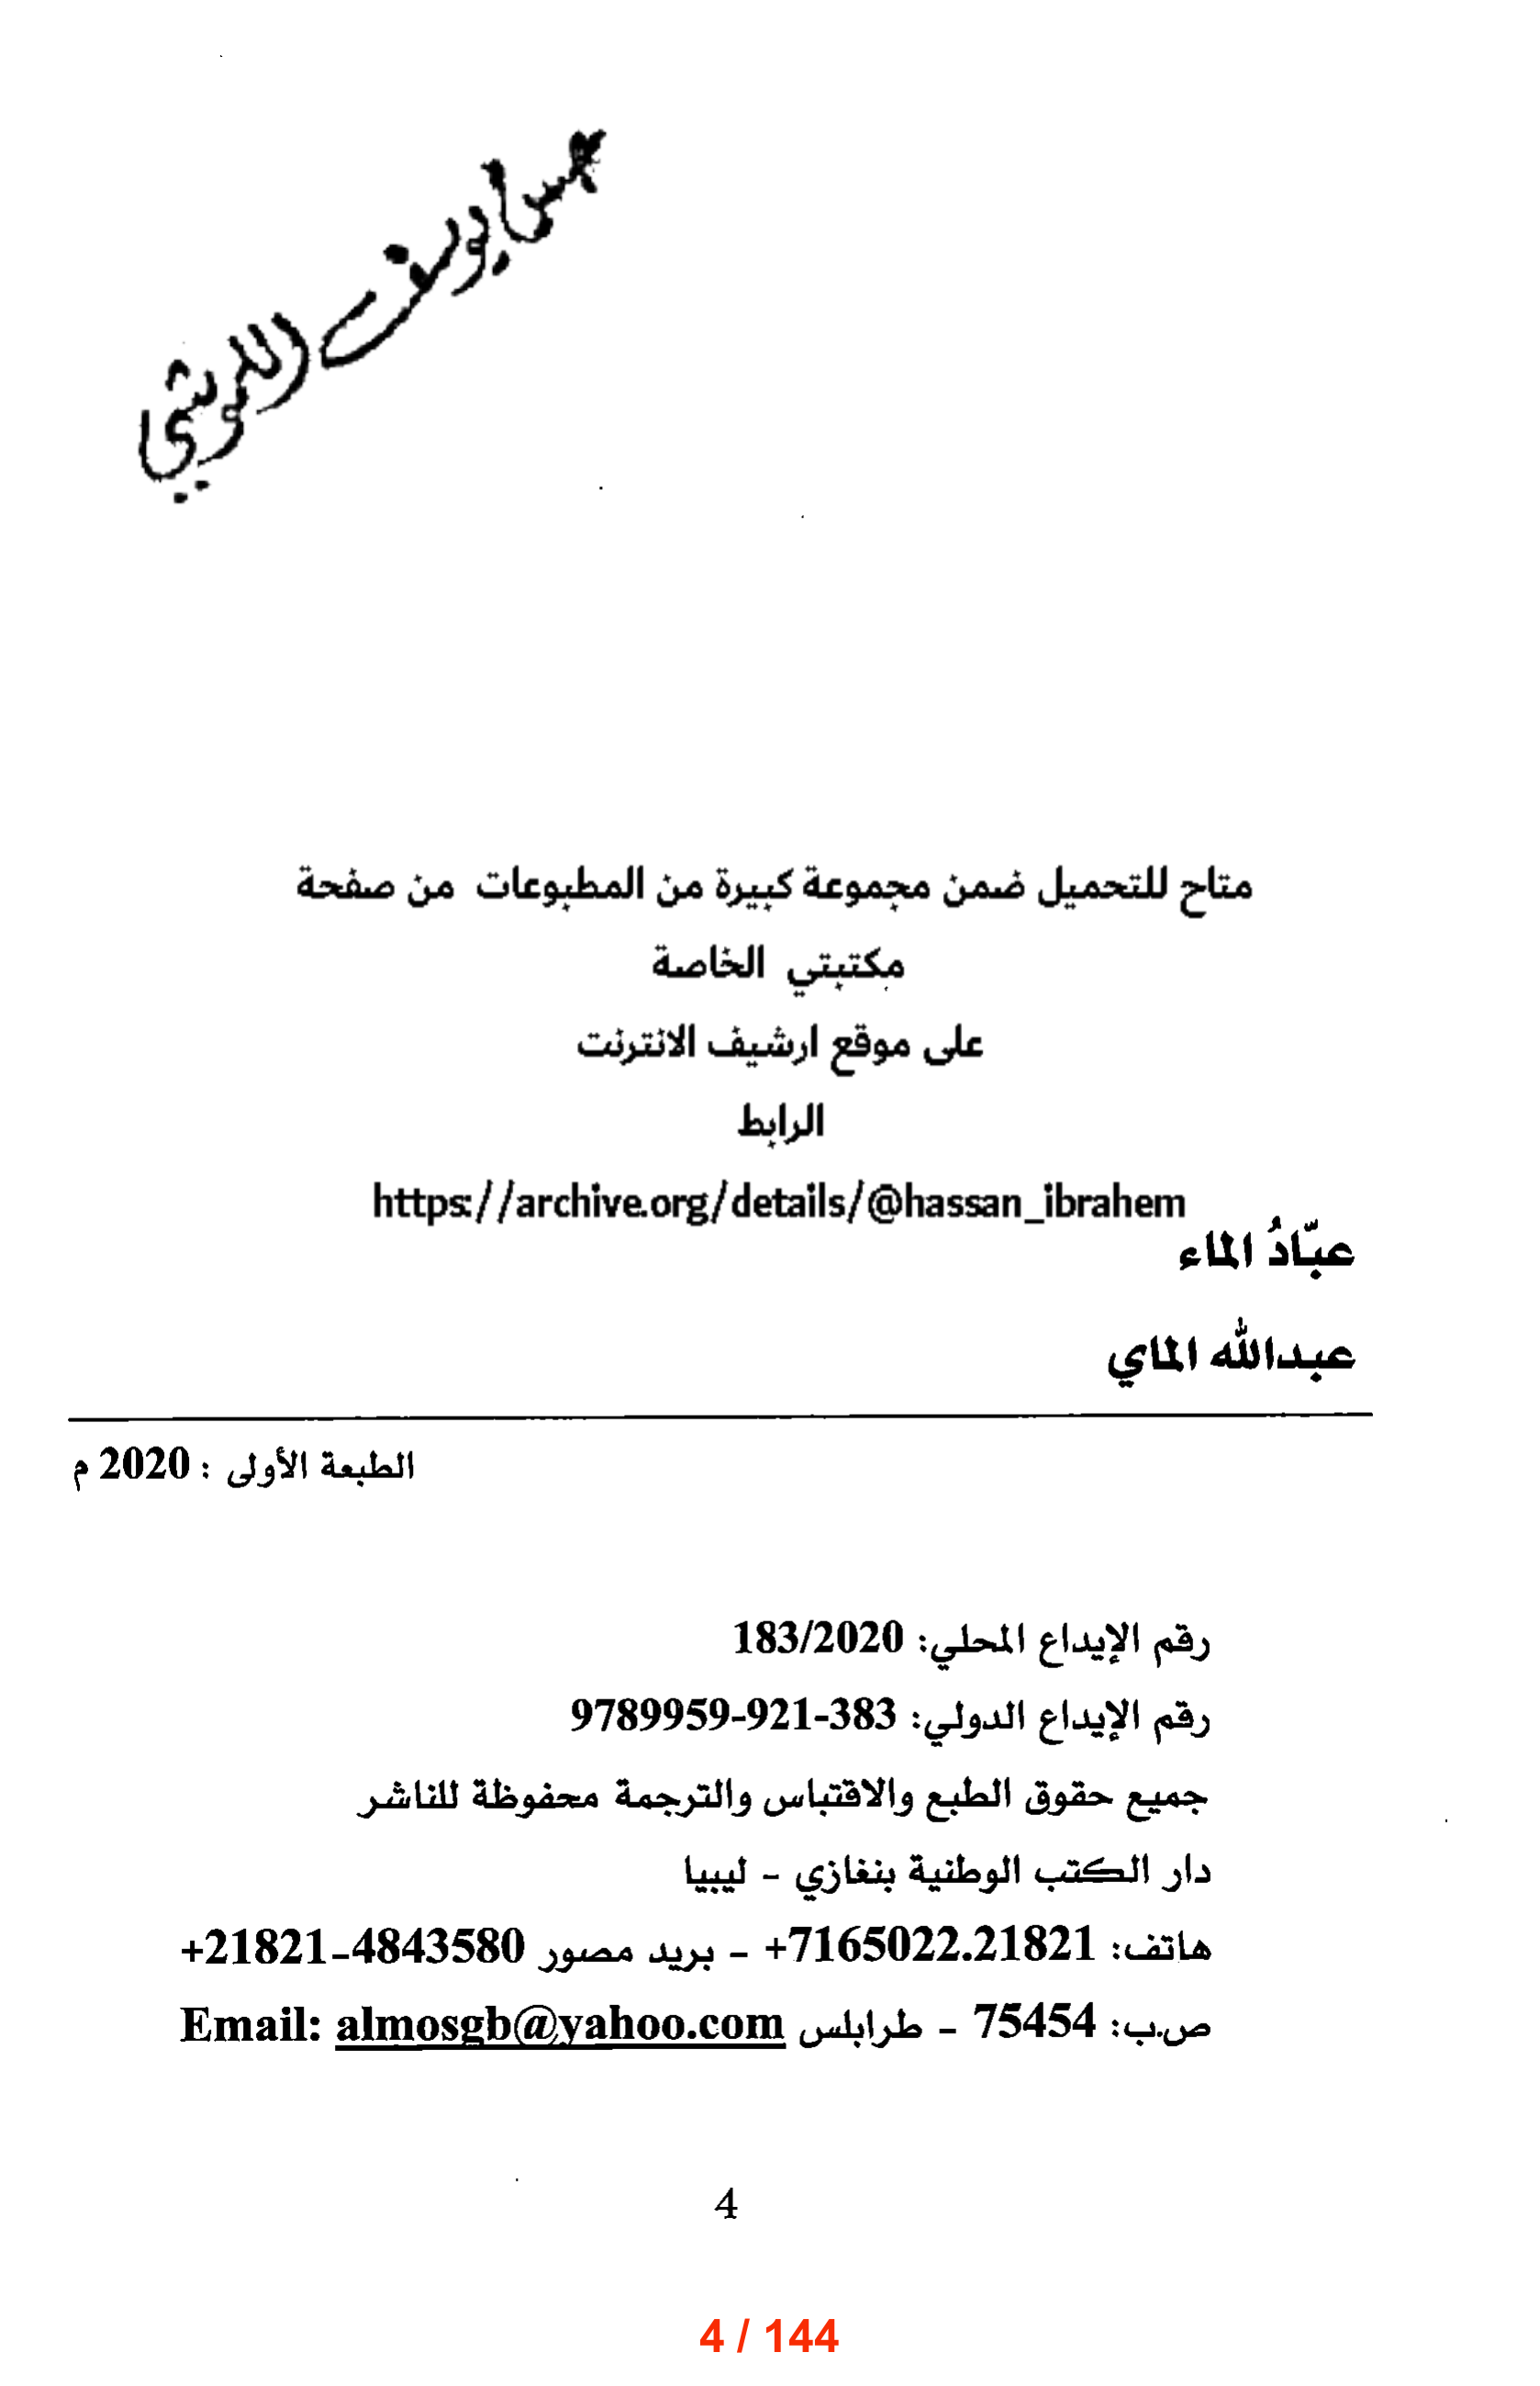 يوسف الكويتي
متاح للتحميل ضمن مجموعة كبيرة من المطبوعات من صفحة
مكتبتي الخاصة
على موقع ارشيف الانترنت
الرابط
https://archive.org/details/@hassan_ibrahem
عبّادُ الماء
عبدالله الماي
الطبعة الأولى : 2020 م
رقم الإيداع المحلي: 183/2020
رقم الإيداع الدولي: 9789959-921-383
جميع حقوق الطبع والاقتباس والترجمة محفوظة للناشر
دار الكتب الوطنية بنغازي - ليبيا
هاتف: 7165022.21821+ - بريد مصور 4843580-21821+
ص.ب: 75454 - طرابلس Email: almosgb@yahoo.com
4
4 / 144